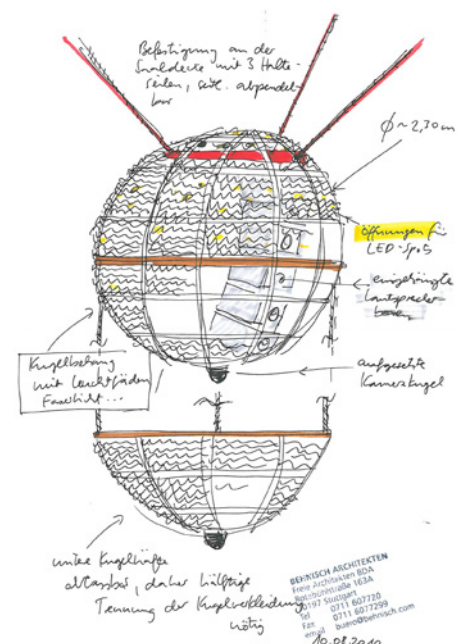 Befestigung an der
Saaldecke mit 3 Halte-
seilen, seitl. abpendel-
bar
Ø ~ 2,30 m
Öffnungen für
LED-Spots
eingehängte
Lautsprecher-
boxen
Kugelbehang
mit Leuchtfäden
Faserlicht...
aufgesetzte
Kamerakugel
untere Kugelhälfte
ablassbar, daher hälftige
Trennung der Kugelverkleidung
nötig
BEHNISCH ARCHITEKTEN
Freie Architekten BDA
Rotebühlstraße 163A
70197 Stuttgart
Tel 0711 607720
Fax 0711 6077299
email buero@behnisch.com
10.08.2010